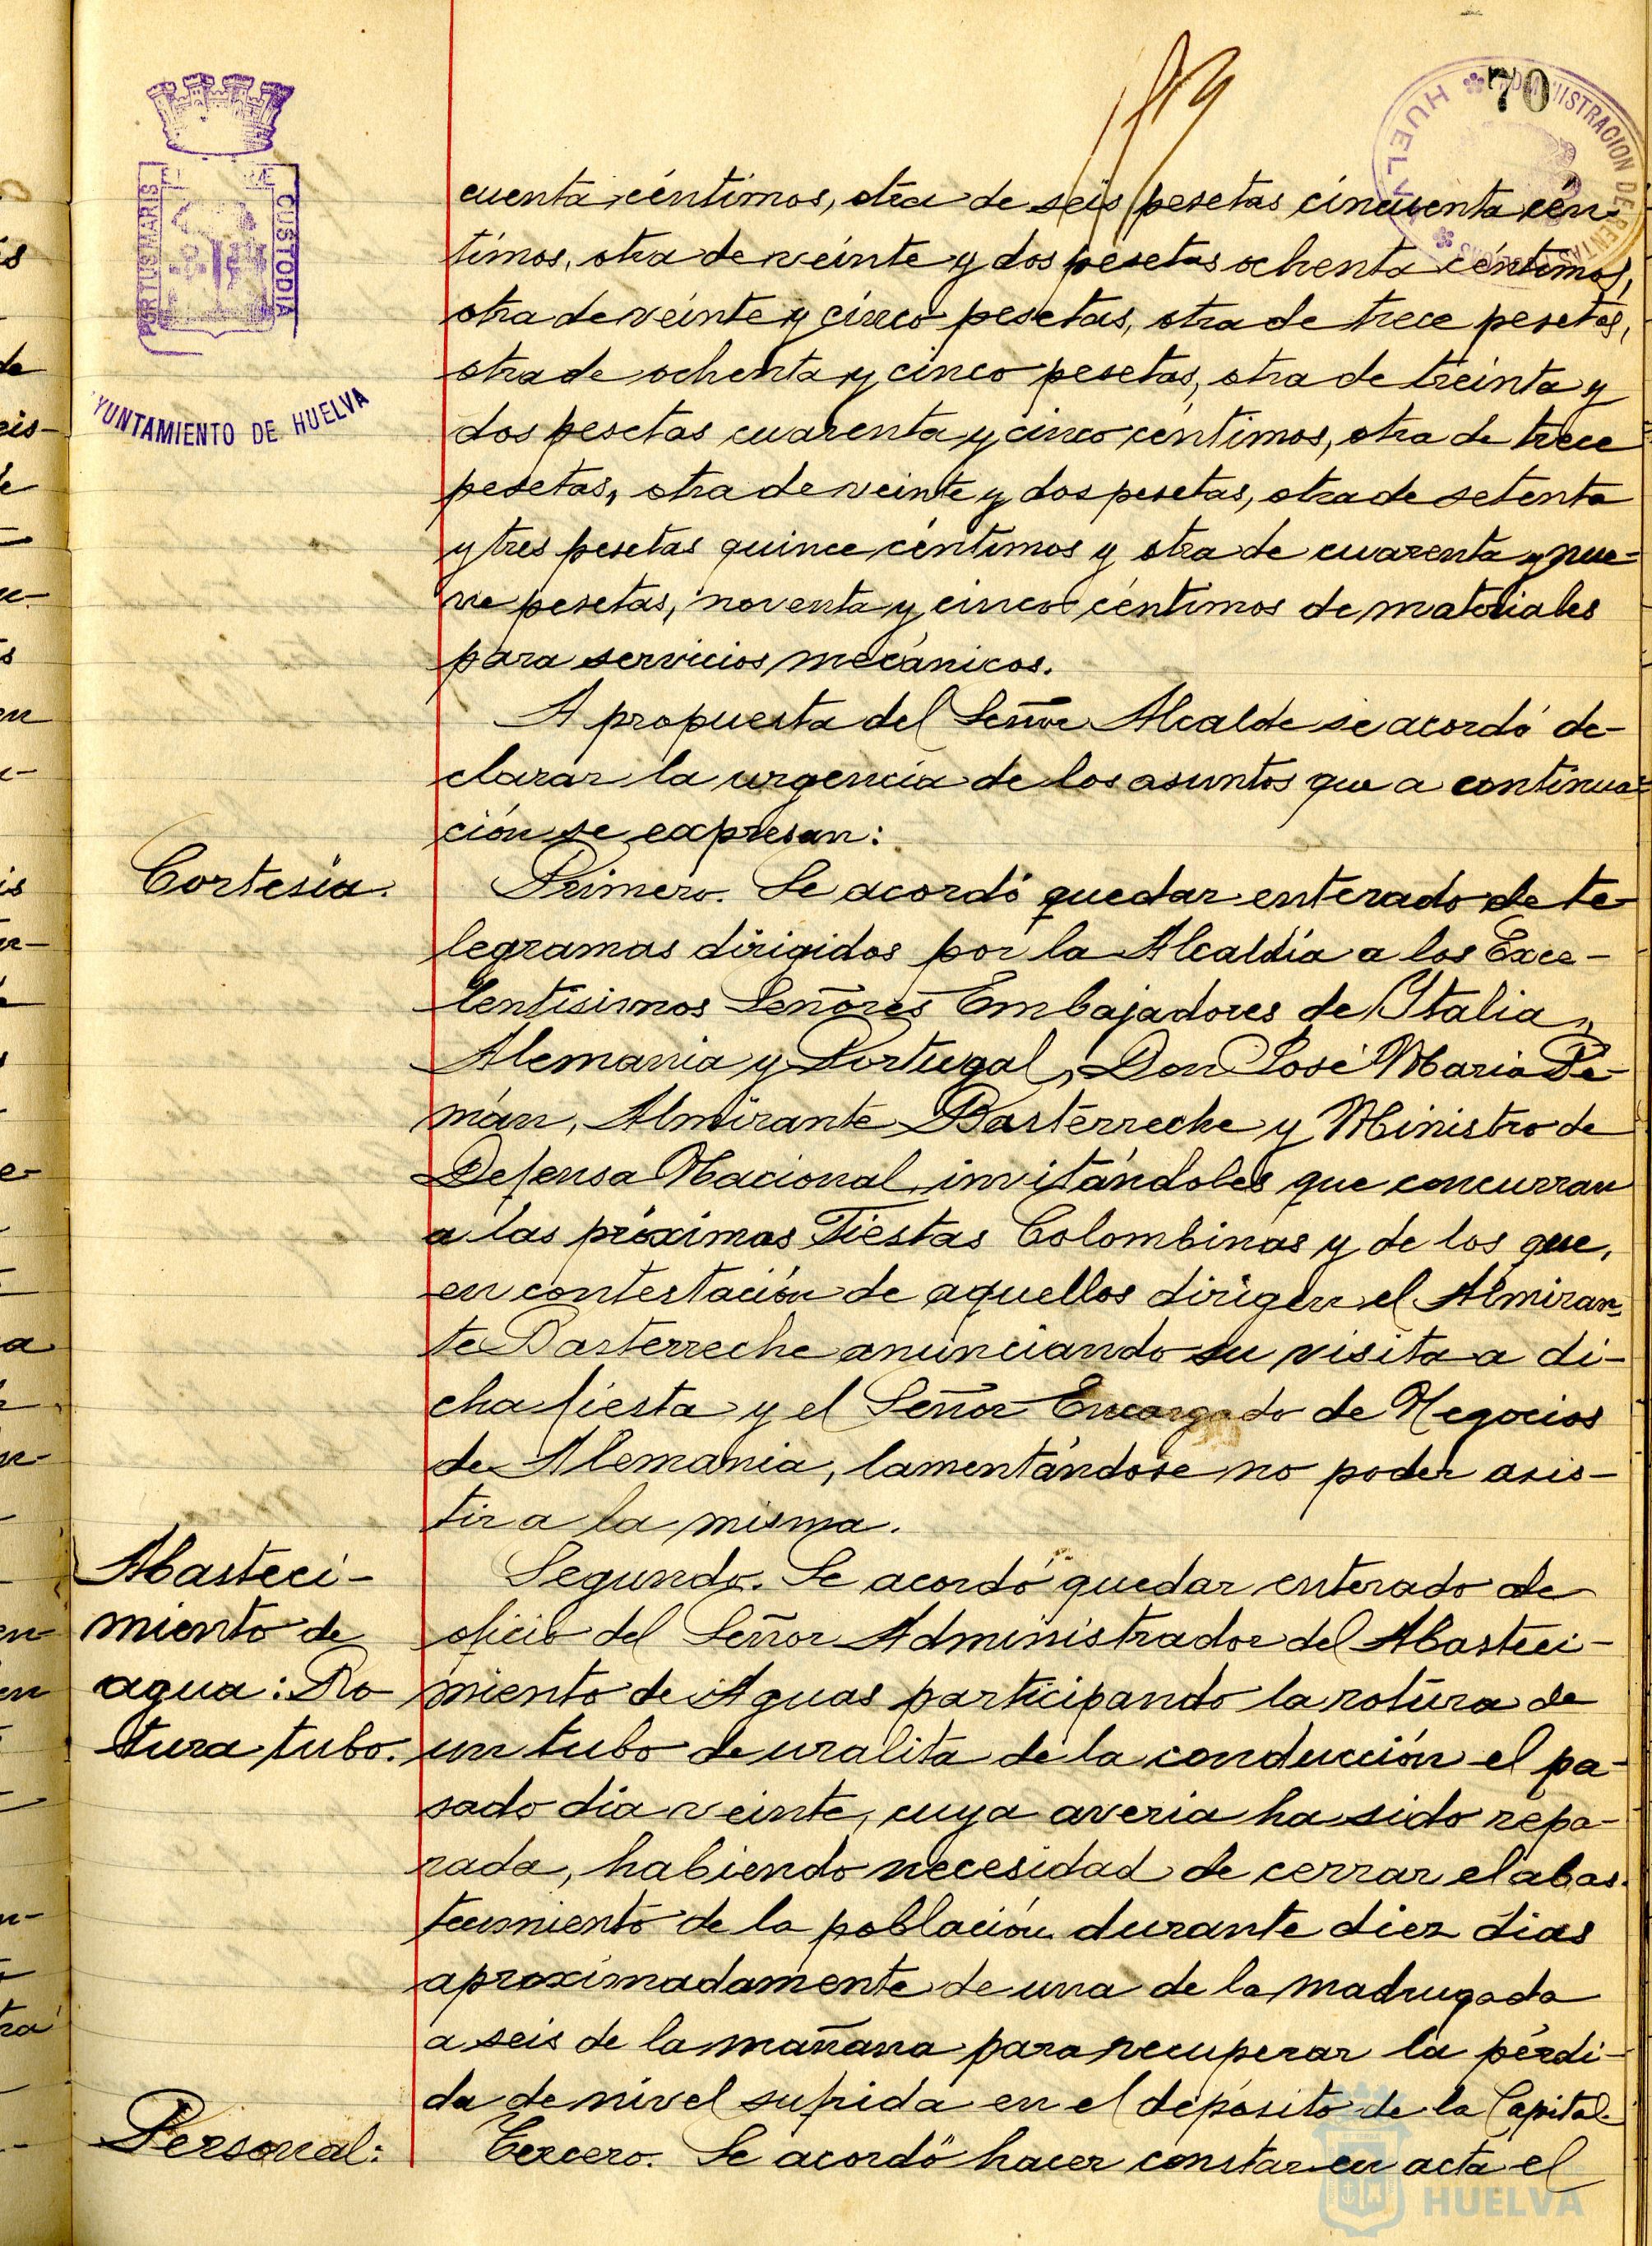 70
PORTUS MARIS
CUSTODIA
AYUNTAMIENTO DE HUELVA
ADMINISTRACION DE RENTAS
HUELVA
cuenta céntimos, otra de seis pesetas cincuenta cén-
timos, otra de veinte y dos pesetas ochenta céntimos,
otra de veinte y cinco pesetas, otra de trece pesetas,
otra de ochenta y cinco pesetas, otra de treinta y
dos pesetas cuarenta y cinco céntimos, otra de trece
pesetas, otra de veinte y dos pesetas, otra de setenta
y tres pesetas quince céntimos y otra de cuarenta y nue-
ve pesetas, noventa y cinco céntimos de materiales
para servicios mecánicos.
A propuesta del Señor Alcalde se acordó de-
clarar la urgencia de los asuntos que a continua-
ción se expresan:
Cortesía.
Primero. Se acordó quedar enterado de te-
legramas dirigidos por la Alcaldía a los Exce-
lentísimos Señores Embajadores de Italia,
Alemania y Portugal, Don José María Pe-
mán, Almirante Bastérreche y Ministro de
Defensa Nacional, invitándoles que concurran
a las próximas Fiestas Colombinas y de los que,
en contestación de aquellos dirigen el Almiran-
te Basterreche anunciando su visita a di-
cha fiesta y el Señor Encargado de Negocios
de Alemania, lamentándose no poder asis-
tir a la misma.
Abasteci-
miento de
agua: Ro
tura tubo.
Segundo. Se acordó quedar enterado de
oficio del Señor Administrador del Abasteci-
miento de Aguas participando la rotura de
un tubo de uralita de la conducción el pa-
sado dia veinte, cuya averia ha sido repa-
rada, habiendo necesidad de cerrar el abas-
tecimiento de la población durante diez dias
aproximadamente de una de la madrugada
a seis de la mañana para recuperar la pérdi-
da de nivel sufrida en el depósito de la Capital.
Personal:
Tercero. Se acordó hacer constar en acta el
HUELVA